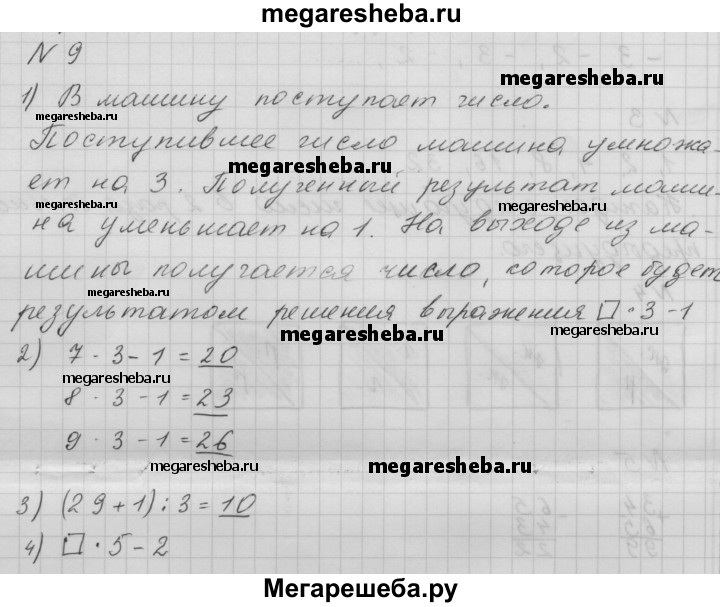 megaresheba.ru
N 9
megaresheba.ru
1) В машину поступает число.
megaresheba.ru
Поступившее число машина умножа-
megaresheba.ru
ет на 3. Полученный результат маши-
megaresheba.ru
на уменьшает на 1. На выходе из ма-
шины получается число, которое будет
megaresheba.ru
результатом решения выражения □ · 3 - 1
megaresheba.ru
megaresheba.ru
2) 7 · 3 - 1 = 20
megaresheba.ru
megaresheba.ru
8 · 3 - 1 = 23
9 · 3 - 1 = 26
megaresheba.ru
megaresheba.ru
3) (29 + 1) : 3 = 10
4) □ · 5 - 2
Мегарешеба.ру